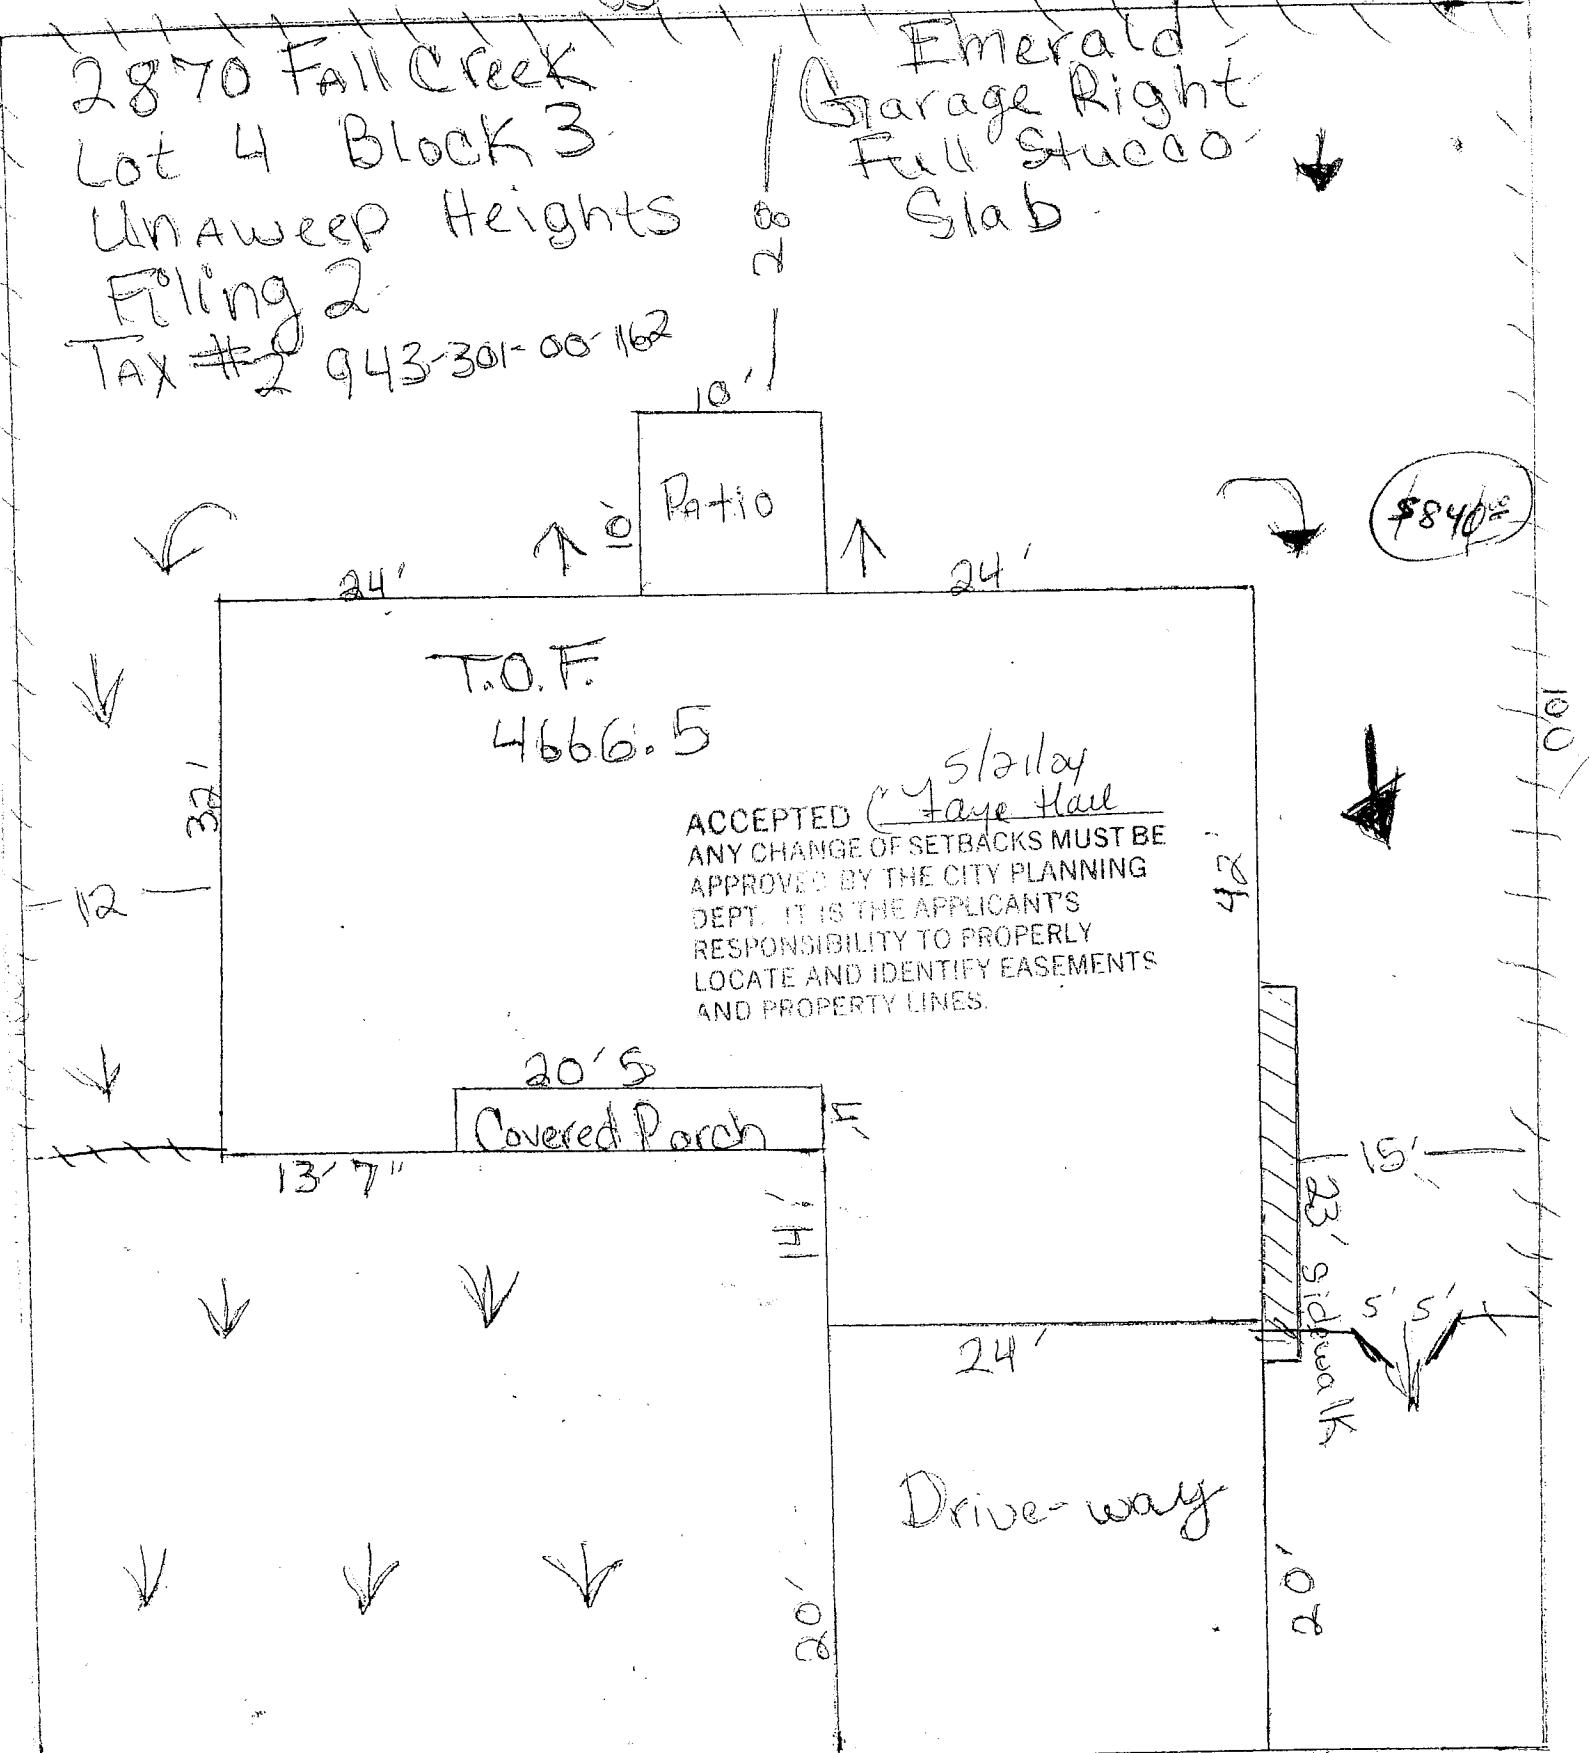 2870 Fall Creek
Lot 4 Block 3
Unaweep Heights
Filing 2
Tax #2 943-301-00-162
Emerald
Garage Right
Full Stucco
Slab
28
10'
10'
Patio
$840
24'
24'
T.O.F.
4666.5
100
32'
5/21/04
ACCEPTED C Faye Hall
ANY CHANGE OF SETBACKS MUST BE
APPROVED BY THE CITY PLANNING
DEPT. IT IS THE APPLICANT'S
RESPONSIBILITY TO PROPERLY
LOCATE AND IDENTIFY EASEMENTS
AND PROPERTY LINES.
42'
12
20'5
Covered Porch
13'7"
15'
14'
23' Sidewalk
5' 5'
24'
Drive-way
20'
20'